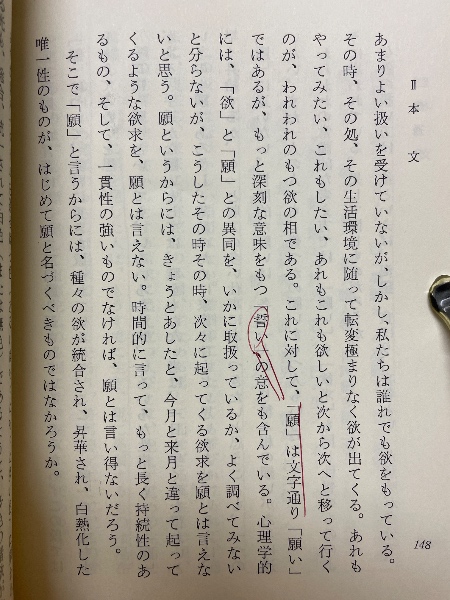 Ⅱ 本 文
あまりよい扱いを受けていないが、しかし、私たちは誰れでも欲をもっている。
その時、その処、その生活環境に随って転変極まりなく欲が出てくる。あれも
やってみたい、これもしたい、あれもこれも欲しいと次から次へと移って行く
のが、われわれのもつ欲の相である。これに対して、「願」は文字通り「願い」
ではあるが、もっと深刻な意味をもつ「誓い」の意をも含んでいる。心理学的
には、「欲」と「願」との異同を、いかに取扱っているか、よく調べてみない
と分らないが、こうしたその時その時、次々に起ってくる欲求を願とは言えな
いと思う。願というからには、きょうとあしたと、今月と来月と違って起って
くるような欲求を、願とは言えない。時間的に言って、もっと長く持続性のあ
るもの、そして、一貫性の強いものでなければ、願とは言い得ないだろう。
そこで「願」と言うからには、種々の欲が統合され、昇華され、白熱化した
唯一性のものが、はじめて願と名づくべきものではなかろうか。
148